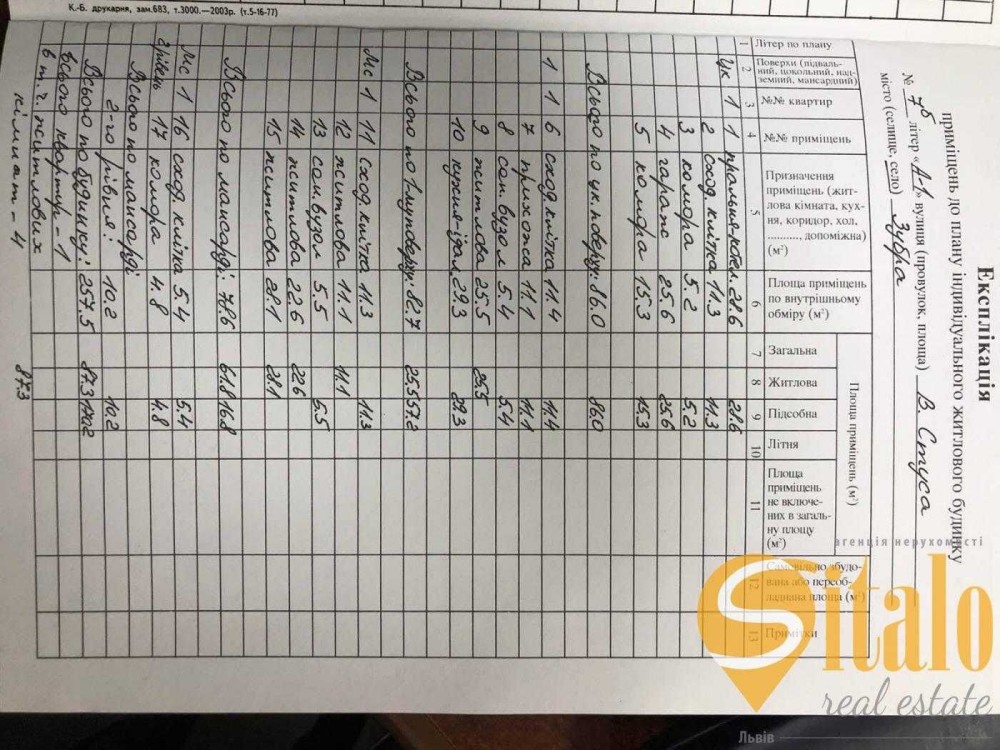 Експлікація
приміщень до плану індивідуального житлового будинку
№ 7б літер «А-1» вулиця (провулок, площа) В. Стуса
місто (селище, село) Зубра
Літер по плану
Поверхи (підвальний, цокольний, надземний, мансардний)
№№ квартир
№№ приміщень
Призначення приміщень (житлова кімната, кухня, коридор, хол, .........., допоміжна) (м²)
Площа приміщень по внутрішньому обміру (м²)
Площа приміщень (м²)
Загальна
Житлова
Підсобна
Літня
Площа приміщень не включених в загальну площу (м²)
Самовільно збудована або переобладнана площа (м²)
Примітки
1 2 3 4 5 6 7 8 9 10 11 12 13
Цк 1 1 пральня-котел. 28.6 28.6
2 сход. клітка 11.3 11.3
3 комора 5.2 5.2
4 гараж 25.6 25.6
5 комора 15.3 15.3
Всього по цк. поверху: 86.0 86.0
1 1 6 сход. клітка 11.4 11.4
7 прихожа 11.1 11.1
8 сан. вузол 5.4 5.4
9 житлова 25.5 25.5
10 кухня-їдал. 29.3 29.3
Всього по 1-му поверху: 82.7 25.5 57.2
Мс 1 11 сход. клітка 11.3 11.3
12 житлова 11.1 11.1
13 сан. вузол 5.5 5.5
14 житлова 22.6 22.6
15 житлова 28.1 28.1
Всього по мансарді: 78.6 61.8 16.8
Мс 1 16 сход. клітка 5.4 5.4
2 рівень 17 комора 4.8 4.8
Всього по мансарді
2-го рівня: 10.2 10.2
Всього по будинку: 257.5 87.3 170.2
Всього квартир - 1
в т. ч. житлових
кімнат - 4 87.3
К.-Б. друкарня, зам.683, т.3000.—2003р. (т.5-16-77)
агенція нерухомості
Sitalo
real estate
Львів